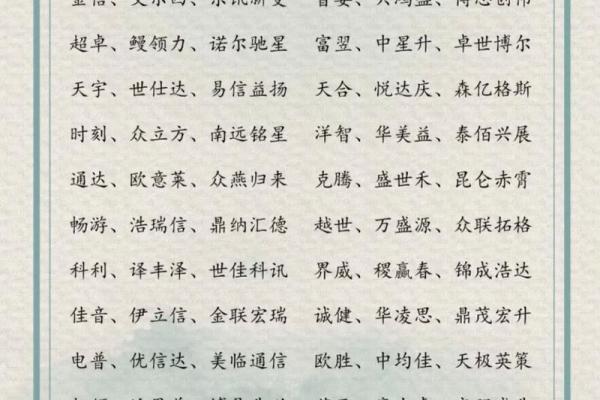 超卓、鳗领力、诺尔驰星 富翌、中星升、卓世博尔
天宇、世仕达、易信益扬 天合、悦达庆、森亿格斯
时刻、众立方、南远铭星 洋智、华美益、泰佰兴展
通达、欧意莱、众燕归来 克腾、盛世禾、昆仑赤霄
畅游、浩瑞信、鼎纳汇德 越世、万盛源、众联拓格
科利、译丰泽、世佳科讯 界威、稷赢春、锦成浩达
佳音、伊立信、金联宏瑞 诚健、华凌思、鼎茂宏升
电普、优信达、美临通信 欧胜、中均佳、天极英策